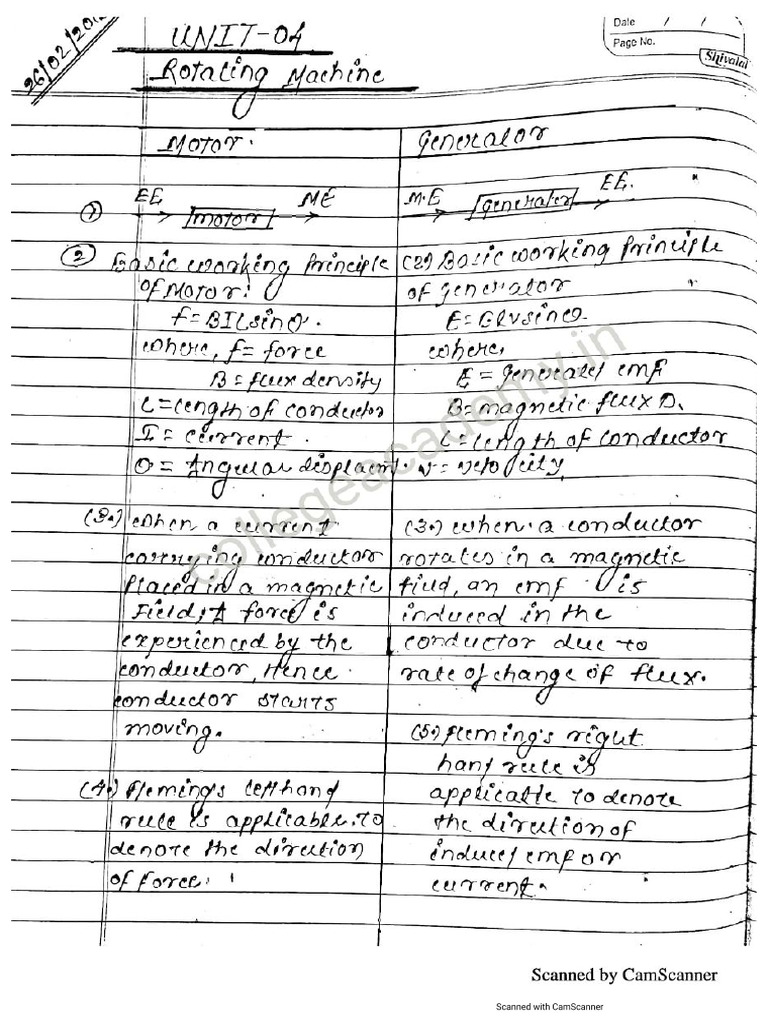 26/02/20
UNIT-04
Date / /
Page No.
Shivalal
Rotating Machine
Motor.
Generator
① EE [motor] ME
M.E [generator] EE.
② Basic working principle
of Motor:
f = BILsinθ.
where, f = force
B = flux density
L = length of conductor
I = current.
θ = Angular displacmt.
(2) Basic working principle
of generator
E = BLVsinθ.
where,
E = generated emf
B = magnetic flux D.
L = length of conductor
v = velocity
(3.) when a current
carrying conductor
placed in a magnetic
Field, A force is
experienced by the
conductor, Hence
conductor starts
moving.
(3.) when a conductor
rotates in a magnetic
field, an emf is
induced in the
conductor due to
rate of change of flux.
(4.) Fleming's left hand
rule is applicable to
denote the direction
of force.
(5.) fleming's right
hand rule is
applicable to denote
the direction of
induced emf or
current.
collegeacademy.in
Scanned by CamScanner
Scanned with CamScanner